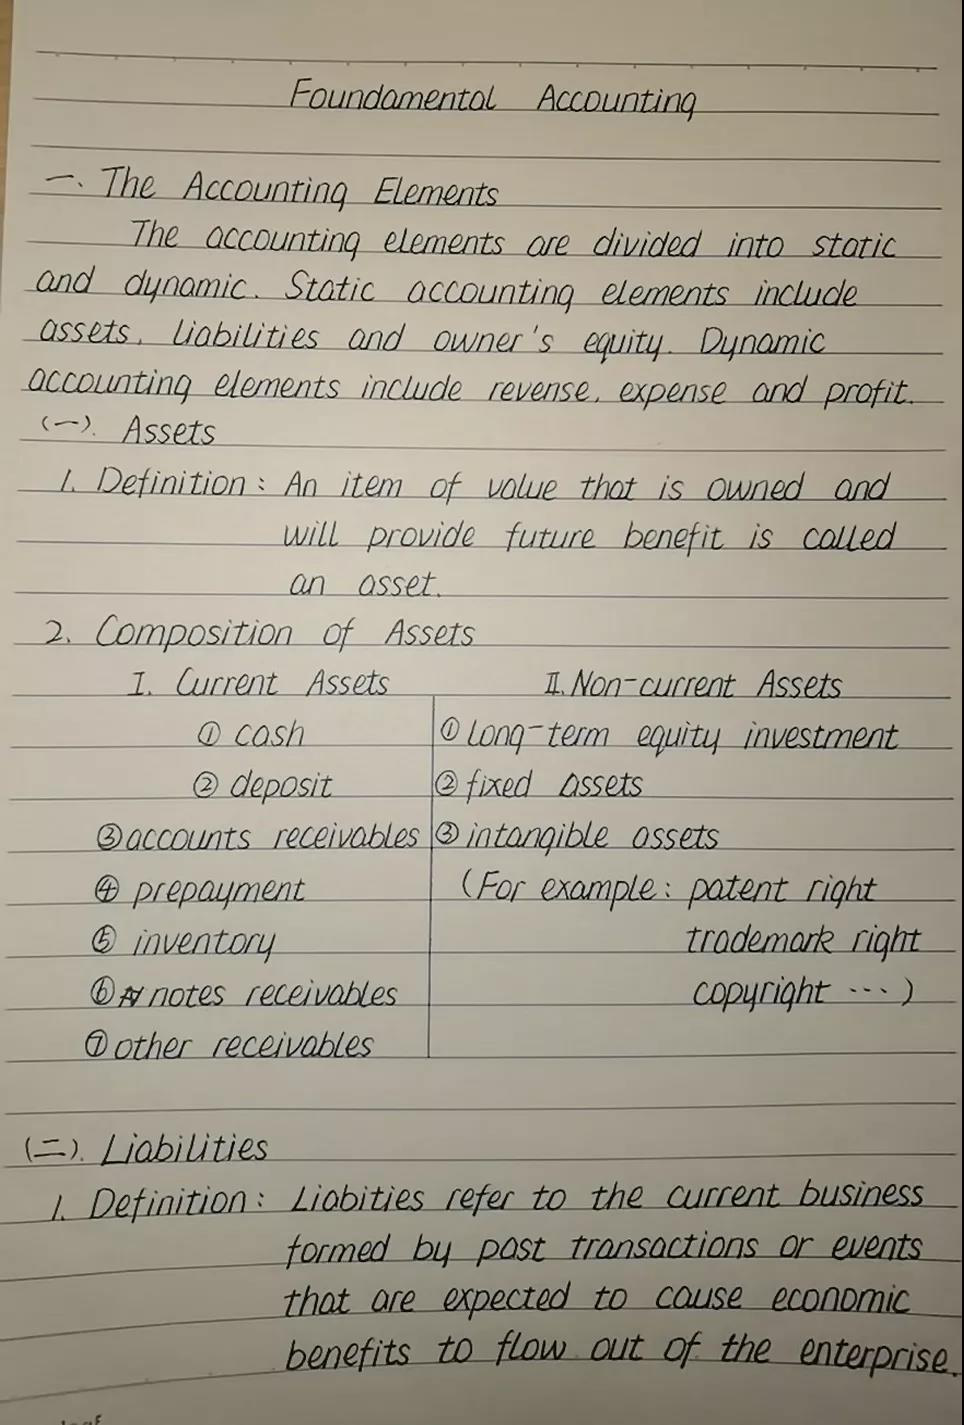 Foundamental Accounting
一、The Accounting Elements
The accounting elements are divided into static
and dynamic. Static accounting elements include
assets, liabilities and owner's equity. Dynamic
accounting elements include revense, expense and profit.
(一). Assets
1. Definition: An item of value that is owned and
will provide future benefit is called
an asset.
2. Composition of Assets
I. Current Assets II. Non-current Assets
① cash ① long-term equity investment
② deposit ② fixed assets
③ accounts receivables ③ intangible assets
④ prepayment (For example: patent right
⑤ inventory trademark right
⑥ notes receivables copyright ...)
⑦ other receivables
(二). Liabilities
1. Definition: Liabities refer to the current business
formed by past transactions or events
that are expected to cause economic
benefits to flow out of the enterprise.